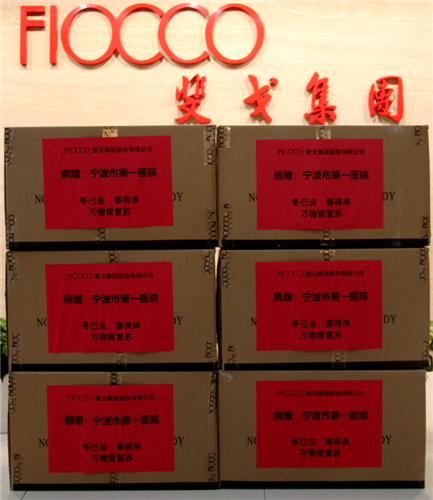 FIOCCO
斐戈集團
FIOCCO 斐戈集团股份有限公司
捐赠：宁波市第一医院
冬已去 春将来
万物皆复苏
FIOCCO 斐戈集团股份有限公司
捐赠：宁波市第一医院
冬已去 春将来
万物皆复苏
FIOCCO 斐戈集团股份有限公司
捐赠：宁波市第一医院
冬已去 春将来
万物皆复苏
FIOCCO 斐戈集团股份有限公司
捐赠：宁波市第一医院
冬已去 春将来
万物皆复苏
FIOCCO 斐戈集团股份有限公司
捐赠：宁波市第一医院
冬已去 春将来
万物皆复苏
FIOCCO 斐戈集团股份有限公司
捐赠：宁波市第一医院
冬已去 春将来
万物皆复苏